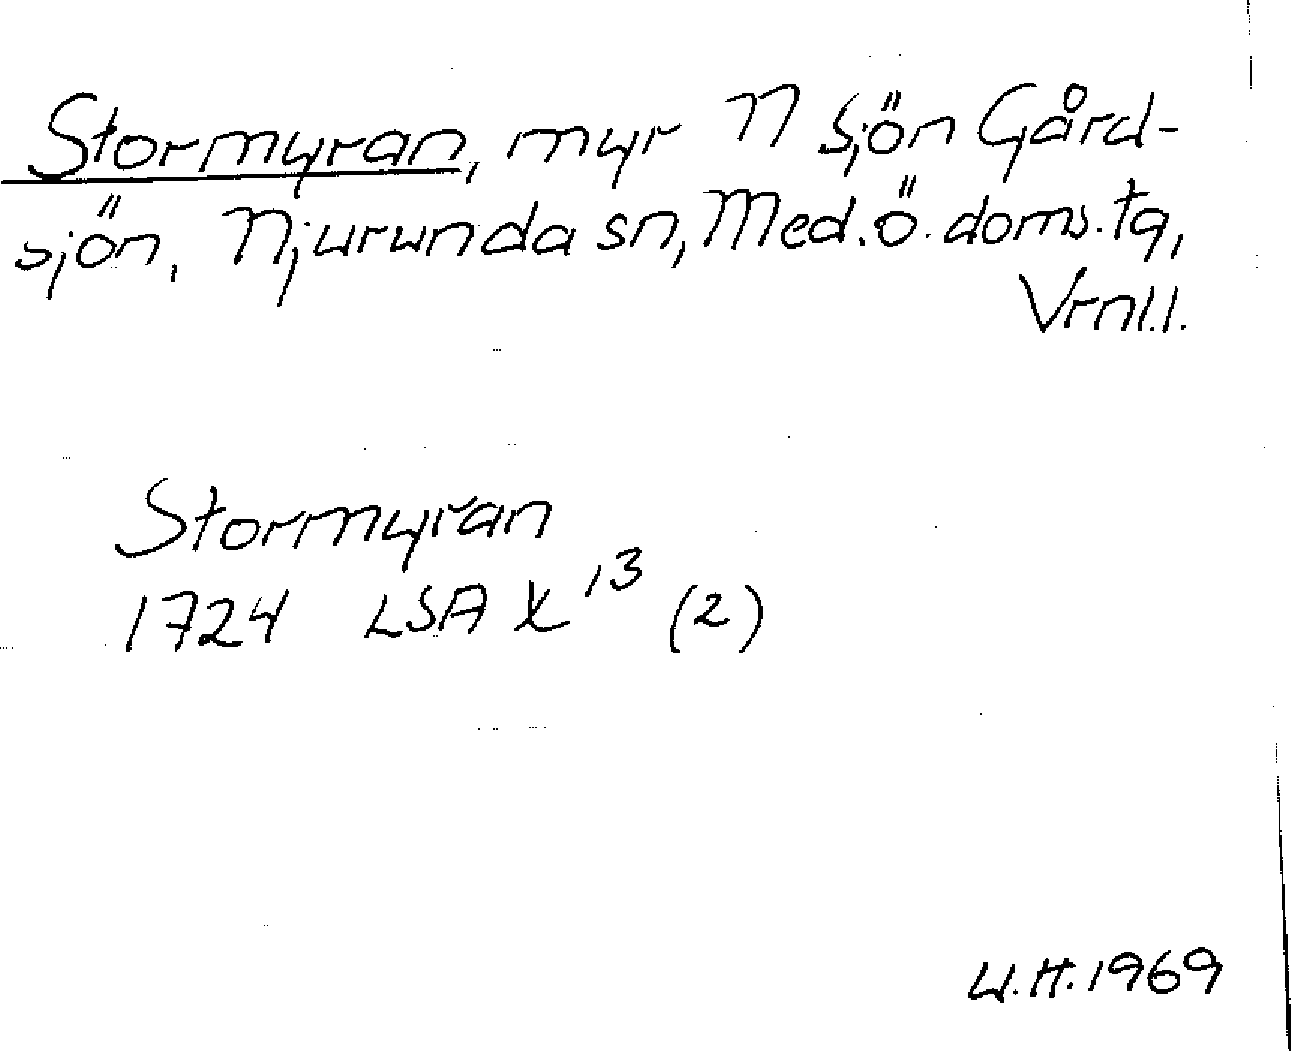 Stormyran, myr N sjön Gård-
sjön, Njurunda sn, Med. ö. doms. tg,
Vrnl.l.
Stormyran
1724 LSA X¹³ (2)
U.H. 1969